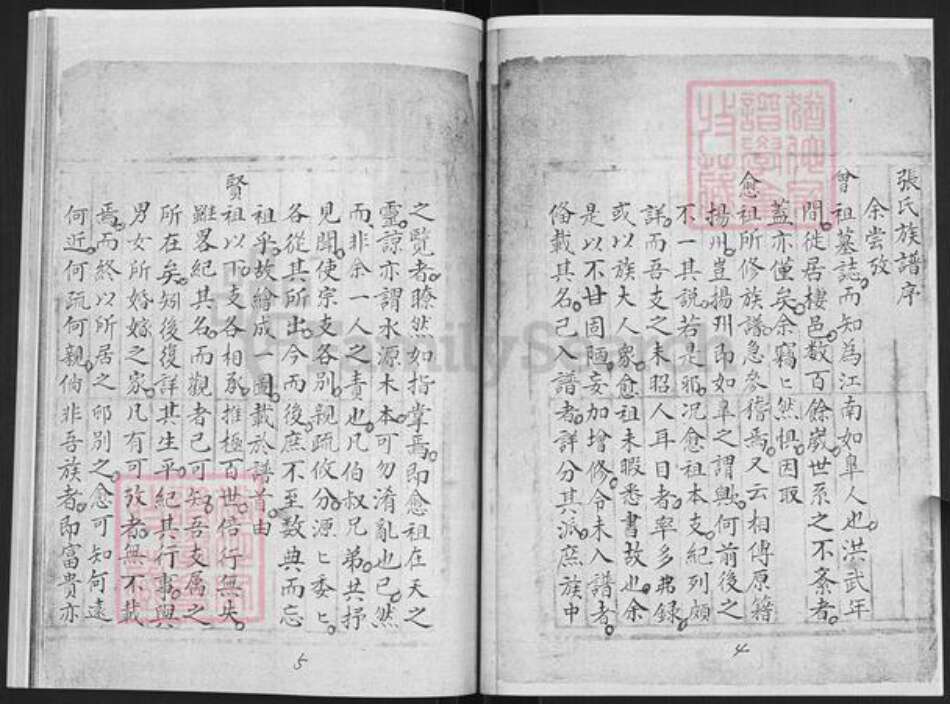 張氏族譜序
余嘗攷
曾祖墓誌而知為江南如臯人也洪武年
間徙居棲邑數百餘歲世系之不紊者
蓋亦僅矣余竊匕然惧因取
愈祖所修族譜急叅稽焉又云相傳原籍
揚州豈揚州即如臯之謂與何前後之
不一其説若是耶况愈祖本支紀列頗
詳而吾支之未昭人耳目者率多弗録
或以族大人衆愈祖未暇悉書故也余
是以不甘固陋妄加增修令未入譜者
俻載其名已入譜者詳分其派庶族中
之覽者瞭然如指掌焉即愈祖在天之
靈諒亦謂水源木本可勿淆亂也已然
而非余一人之責也凡伯叔兄弟共抒
見聞使宗支各别親疏攸分源匕委匕
各從其所出今而後庶不至数典而忘
祖乎故繪成一圖載於譜首由
賢祖以下支各相承推極百世倍行無失
雖畧紀其名而觀者已可知吾支属之
所在矣矧後復詳其生平紀其行事與
男女所婚嫁之家凡有可攷者無不載
焉而終以所居之邨别之愈可知何遠
何近何疏何親倘非吾族者即富貴亦
4
5
FamilySearch